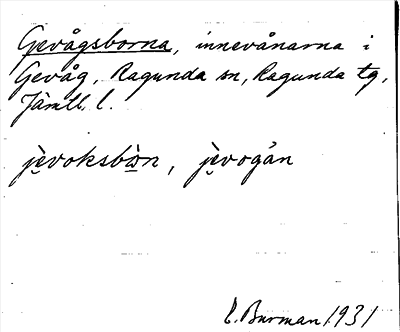 Gevågsborna, innevånarna i
Gevåg, Ragunda sn, Ragunda tg,
Jämtl. l.
jèvoksbòn, jèvogån
E. Burman 1931